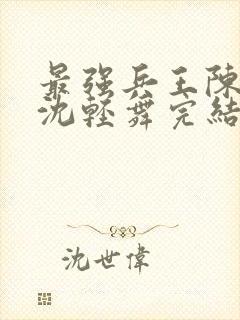 最强兵王陈
沈轻舞完結
沈世偉